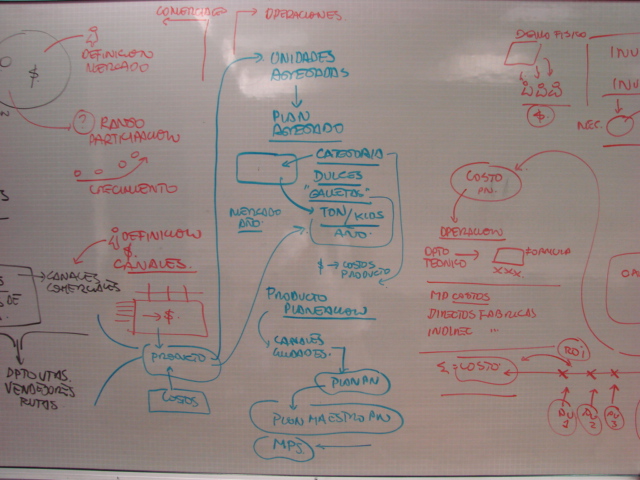 COMERCIAL
OPERACIONES.
DEFINICION
MERCADO
$
?
RANGO
PARTICIPACION
CRECIMIENTO
DEFINICION
$.
CANALES.
CANALES
COMERCIALES
DPTO VTAS.
VENDEDORES
RUTAS
→ $.
PRODUCTO
COSTOS
UNIDADES
AGREGADAS
PLAN
AGREGADO
CATEGORIA
DULCES
"GALLETAS"
TON/KILOS
AÑO.
MERCADO
AÑO.
$ → COSTOS
PRODUCTO
PRODUCTO
PLANEACION
CANALES
CIUDADES.
PLAN PN
PLAN MAESTRO PN
MPS.
FISICO
$.
INV
INV
NEC.
COSTO
PN.
OPERACION
DPTO
TECNICO
FORMULA
XXX.
MP COSTOS
DIRECTOS FABRICAS
INDIREC ...
Σ = COSTO